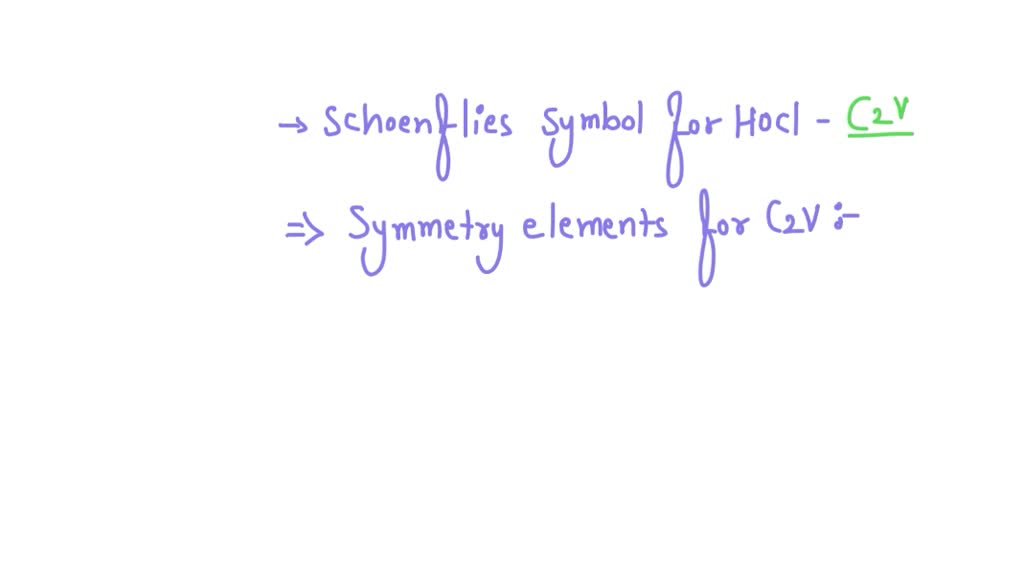 → Schoenflies symbol for Hocl - C2V
⇒ Symmetry elements for C2V :-